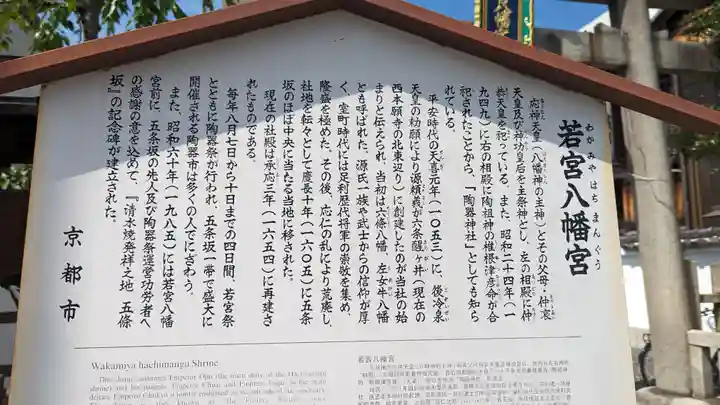 若宮八幡宮
わかみやはちまんぐう
応神天皇（八幡神の主神）とその父母・仲哀
天皇及び神功皇后を主祭神とし、左の相殿に仲
恭天皇を祀っている。また、昭和二十四年（一
九四九）に右の相殿に陶祖神の椎根津彦命が合
祀されたことから、「陶器神社」としても知ら
れている。
平安時代の天喜元年（一〇五三）に、後冷泉
天皇の勅願により源頼義が六条醒ヶ井（現在の
西本願寺の北東辺り）に創建したのが当社の始
まりと伝えられ、当初は六條八幡、左女牛八幡
とも呼ばれた。源氏一族や武士からの信仰が厚
く、室町時代には足利歴代将軍の崇敬を集め
隆盛を極めた。その後、応仁の乱により荒廃し、
社地を転々として慶長十年（一六〇五）に五条
坂のほぼ中央に当たる当地に移された。
現在の社殿は承応三年（一六五四）に再建さ
れたものである。
毎年八月七日から十日までの四日間、若宮祭
とともに陶器祭が行われ、五条坂一帯で盛大に
開催される陶器市は多くの人でにぎわう。
また、昭和六十年（一九八五）には若宮八幡
宮前に、五条坂の先人及び陶器祭運営功労者へ
の感謝の意を込めて、『清水焼発祥之地　五條
坂』の記念碑が建立された。
京都市
Wakamiya hachimangu Shrine
若宫八幡宮